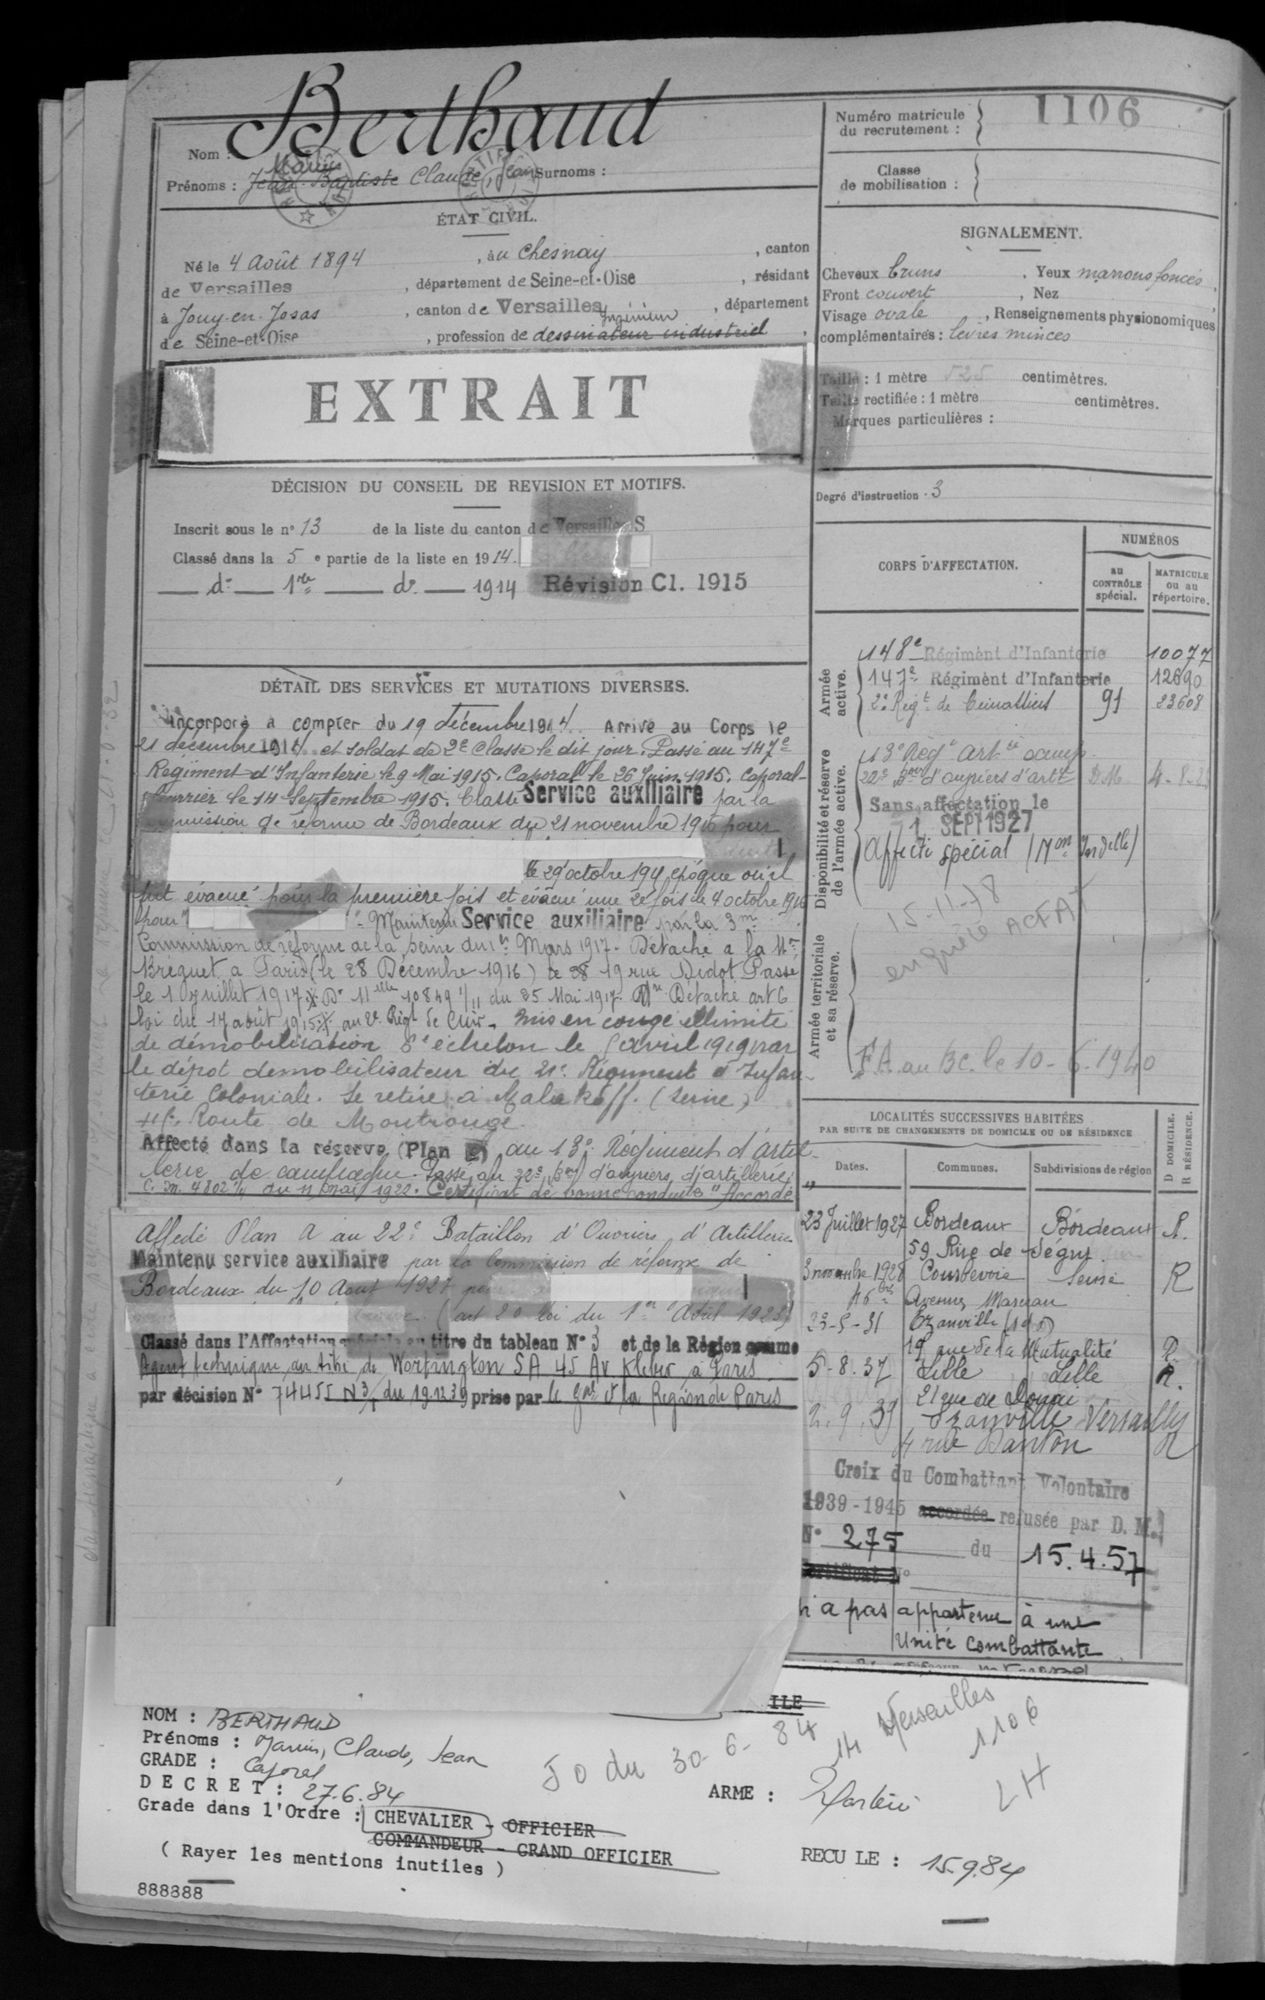 Berthaud
Nom :
Marius
Prénoms : Jean-Baptiste Claude Jean Surnoms :
ÉTAT CIVIL.
Né le 4 Août 1894, au Chesnay, canton
de Versailles, département de Seine-et-Oise, résidant
à Jouy-en-Josas, canton de Versailles, département
Ingénieur
de Seine-et-Oise, profession de dessinateur industriel,
EXTRAIT
DÉCISION DU CONSEIL DE REVISION ET MOTIFS.
Inscrit sous le n° 13 de la liste du canton de Versailles S
Classé dans la 5e partie de la liste en 1914.
— do — 1re — do — 1914 Révision Cl. 1915
DÉTAIL DES SERVICES ET MUTATIONS DIVERSES.
Incorporé à compter du 19 décembre 1914. Arrivé au Corps le
21 décembre 1914 et soldat de 2e classe le dit jour. Passé au 147e
Régiment d'Infanterie le 9 Mai 1915. Caporal le 26 Juin 1915. Caporal-
fourrier le 14 Septembre 1915. Classé Service auxiliaire par la
commission de réforme de Bordeaux du 21 novembre 1916 pour
le 29 octobre 1914 époque où il
fut évacué pour la première fois et évacué une 2e fois le 4 octobre 1916
pour Maintenu Service auxiliaire par la 3me
Commission de réforme de la Seine du 1er Mars 1917. Détaché à la Mon
Bréguet à Paris (le 28 Décembre 1916) 19 rue Didot. Passé
le 1 Juillet 1917 10849 1/11 du 25 Mai 1917. Détaché art 6
loi du 17 août 1915 au 2e Régt de Cuir. Mis en congé illimité
de démobilisation 8e échelon le avril 1919 par
le dépôt démobilisateur du 21e Régiment d'Infan-
terie Coloniale. Se retire à Malakoff. (Seine)
Route de Montrouge.
Affecté dans la réserve (Plan au 13e Régiment d'Artil-
lerie de campagne. Passé au 22e Bon d'ouvriers d'artillerie
C. M. 4802 du 11 Mai 1922. Certificat de bonne conduite "Accordé"
Affecté Plan A au 22e Bataillon d'Ouvriers d'Artillerie
Maintenu service auxiliaire par la Commission de réforme de
Bordeaux du 10 Août 1927 pour
(art 20 loi du 1er Avril 1923)
Classé dans l'Affectation spéciale au titre du tableau N° 3 et de la Région comme
Agent technique au titre de Worthington SA 45 Av Kléber à Paris
par décision N° 74455 N3/4 du 19.12.39 prise par le Gal Ct la Région de Paris
Numéro matricule
du recrutement : 1106
Classe
de mobilisation :
SIGNALEMENT.
Cheveux bruns, Yeux marrons foncés,
Front couvert, Nez
Visage ovale, Renseignements physionomiques
complémentaires : lèvres minces
Taille : 1 mètre 525 centimètres.
Taille rectifiée : 1 mètre centimètres.
Marques particulières :
Degré d'instruction : 3
CORPS D'AFFECTATION.
NUMÉROS
AU CONTRÔLE spécial.
MATRICULE ou au répertoire.
Armée active.
148e Régiment d'Infanterie 10077
147e Régiment d'Infanterie 12690
2e Régt de Cuirassiers 91 23608
Disponibilité et réserve de l'armée active.
13e Régt Artie camp.
22e Bon d'ouvriers d'artie D.M.
Sans affectation le
1 SEPT 1927
Affecté spécial
15-11-78
enquête ACFAT
Armée territoriale et sa réserve.
F.A. au BC. le 10-6-1940
LOCALITÉS SUCCESSIVES HABITÉES
PAR SUITE DE CHANGEMENTS DE DOMICILE OU DE RÉSIDENCE
D DOMICILE.
R RÉSIDENCE.
Dates. Communes. Subdivisions de région
23 Juillet 1927 Bordeaux Bordeaux R.
59 Rue de Ségur
3 novembre 1928 Courbevoie Seine R
Avenue Marceau
Ezanville
19 rue de la Mutualité R.
5-8-37 Lille Lille R.
21 rue de Douai
2.9.39 Ezanville Versailles
4 rue Danton R
Croix du Combattant Volontaire
1939-1945 accordée refusée par D.M.
N° 275 du 15.4.57
Certificat N°
n'a pas appartenu à une
Unité Combattante
NOM : BERTHAUD
Prénoms : Marius, Claude, Jean
GRADE : Caporal
DECRET : 27.6.84
Grade dans l'Ordre : CHEVALIER - OFFICIER
COMMANDEUR - GRAND OFFICIER
( Rayer les mentions inutiles )
888888
JO du 30-6-84
14 Versailles
1106
LH
ARME :
RECU LE : 15.9.84